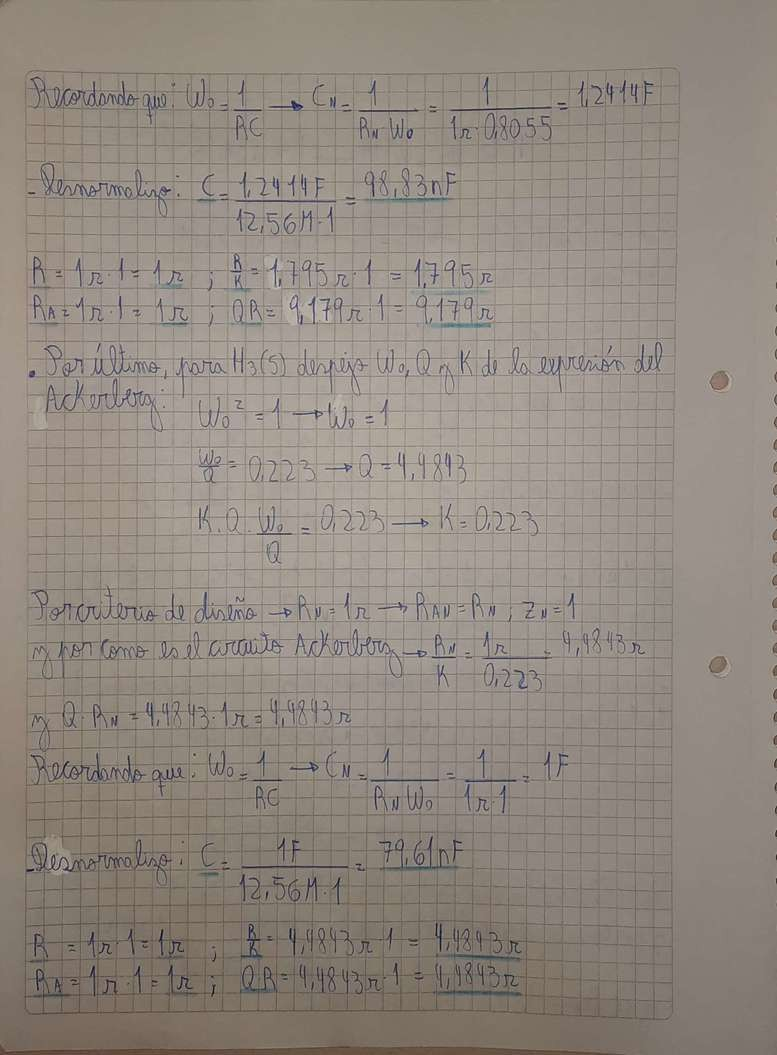 Recordando que: W₀ = 1/RC → C_N = 1/(R_N·W₀) = 1/(1r·0,8055) = 1,2414F
- Desnormalizo: C = 1,2414F/(12,56M·1) = 98,83nF
R = 1r·1 = 1r ; R/K = 1,795r·1 = 1,795r
R_A = 1r·1 = 1r ; QR = 9,179r·1 = 9,179r
• Por último, para H₃(S) despejo W₀, Q y K de la expresión del
Ackerberg:
W₀² = 1 → W₀ = 1
W₀/Q = 0,223 → Q = 4,4843
K·Q·W₀/Q = 0,223 → K = 0,223
Por criterio de diseño → R_N = 1r → R_AN = R_N ; Z_N = 1
y por como es el circuito Ackerberg → R_N/K = 1r/0,223 = 4,4843r
y Q·R_N = 4,4843·1r = 4,4843r
Recordando que: W₀ = 1/RC → C_N = 1/(R_N W₀) = 1/(1r·1) = 1F
- Desnormalizo: C = 1F/(12,56M·1) = 79,61nF
R = 1r·1 = 1r ; R/K = 4,4843r·1 = 4,4843r
R_A = 1r·1 = 1r ; QR = 4,4843r·1 = 4,4843r